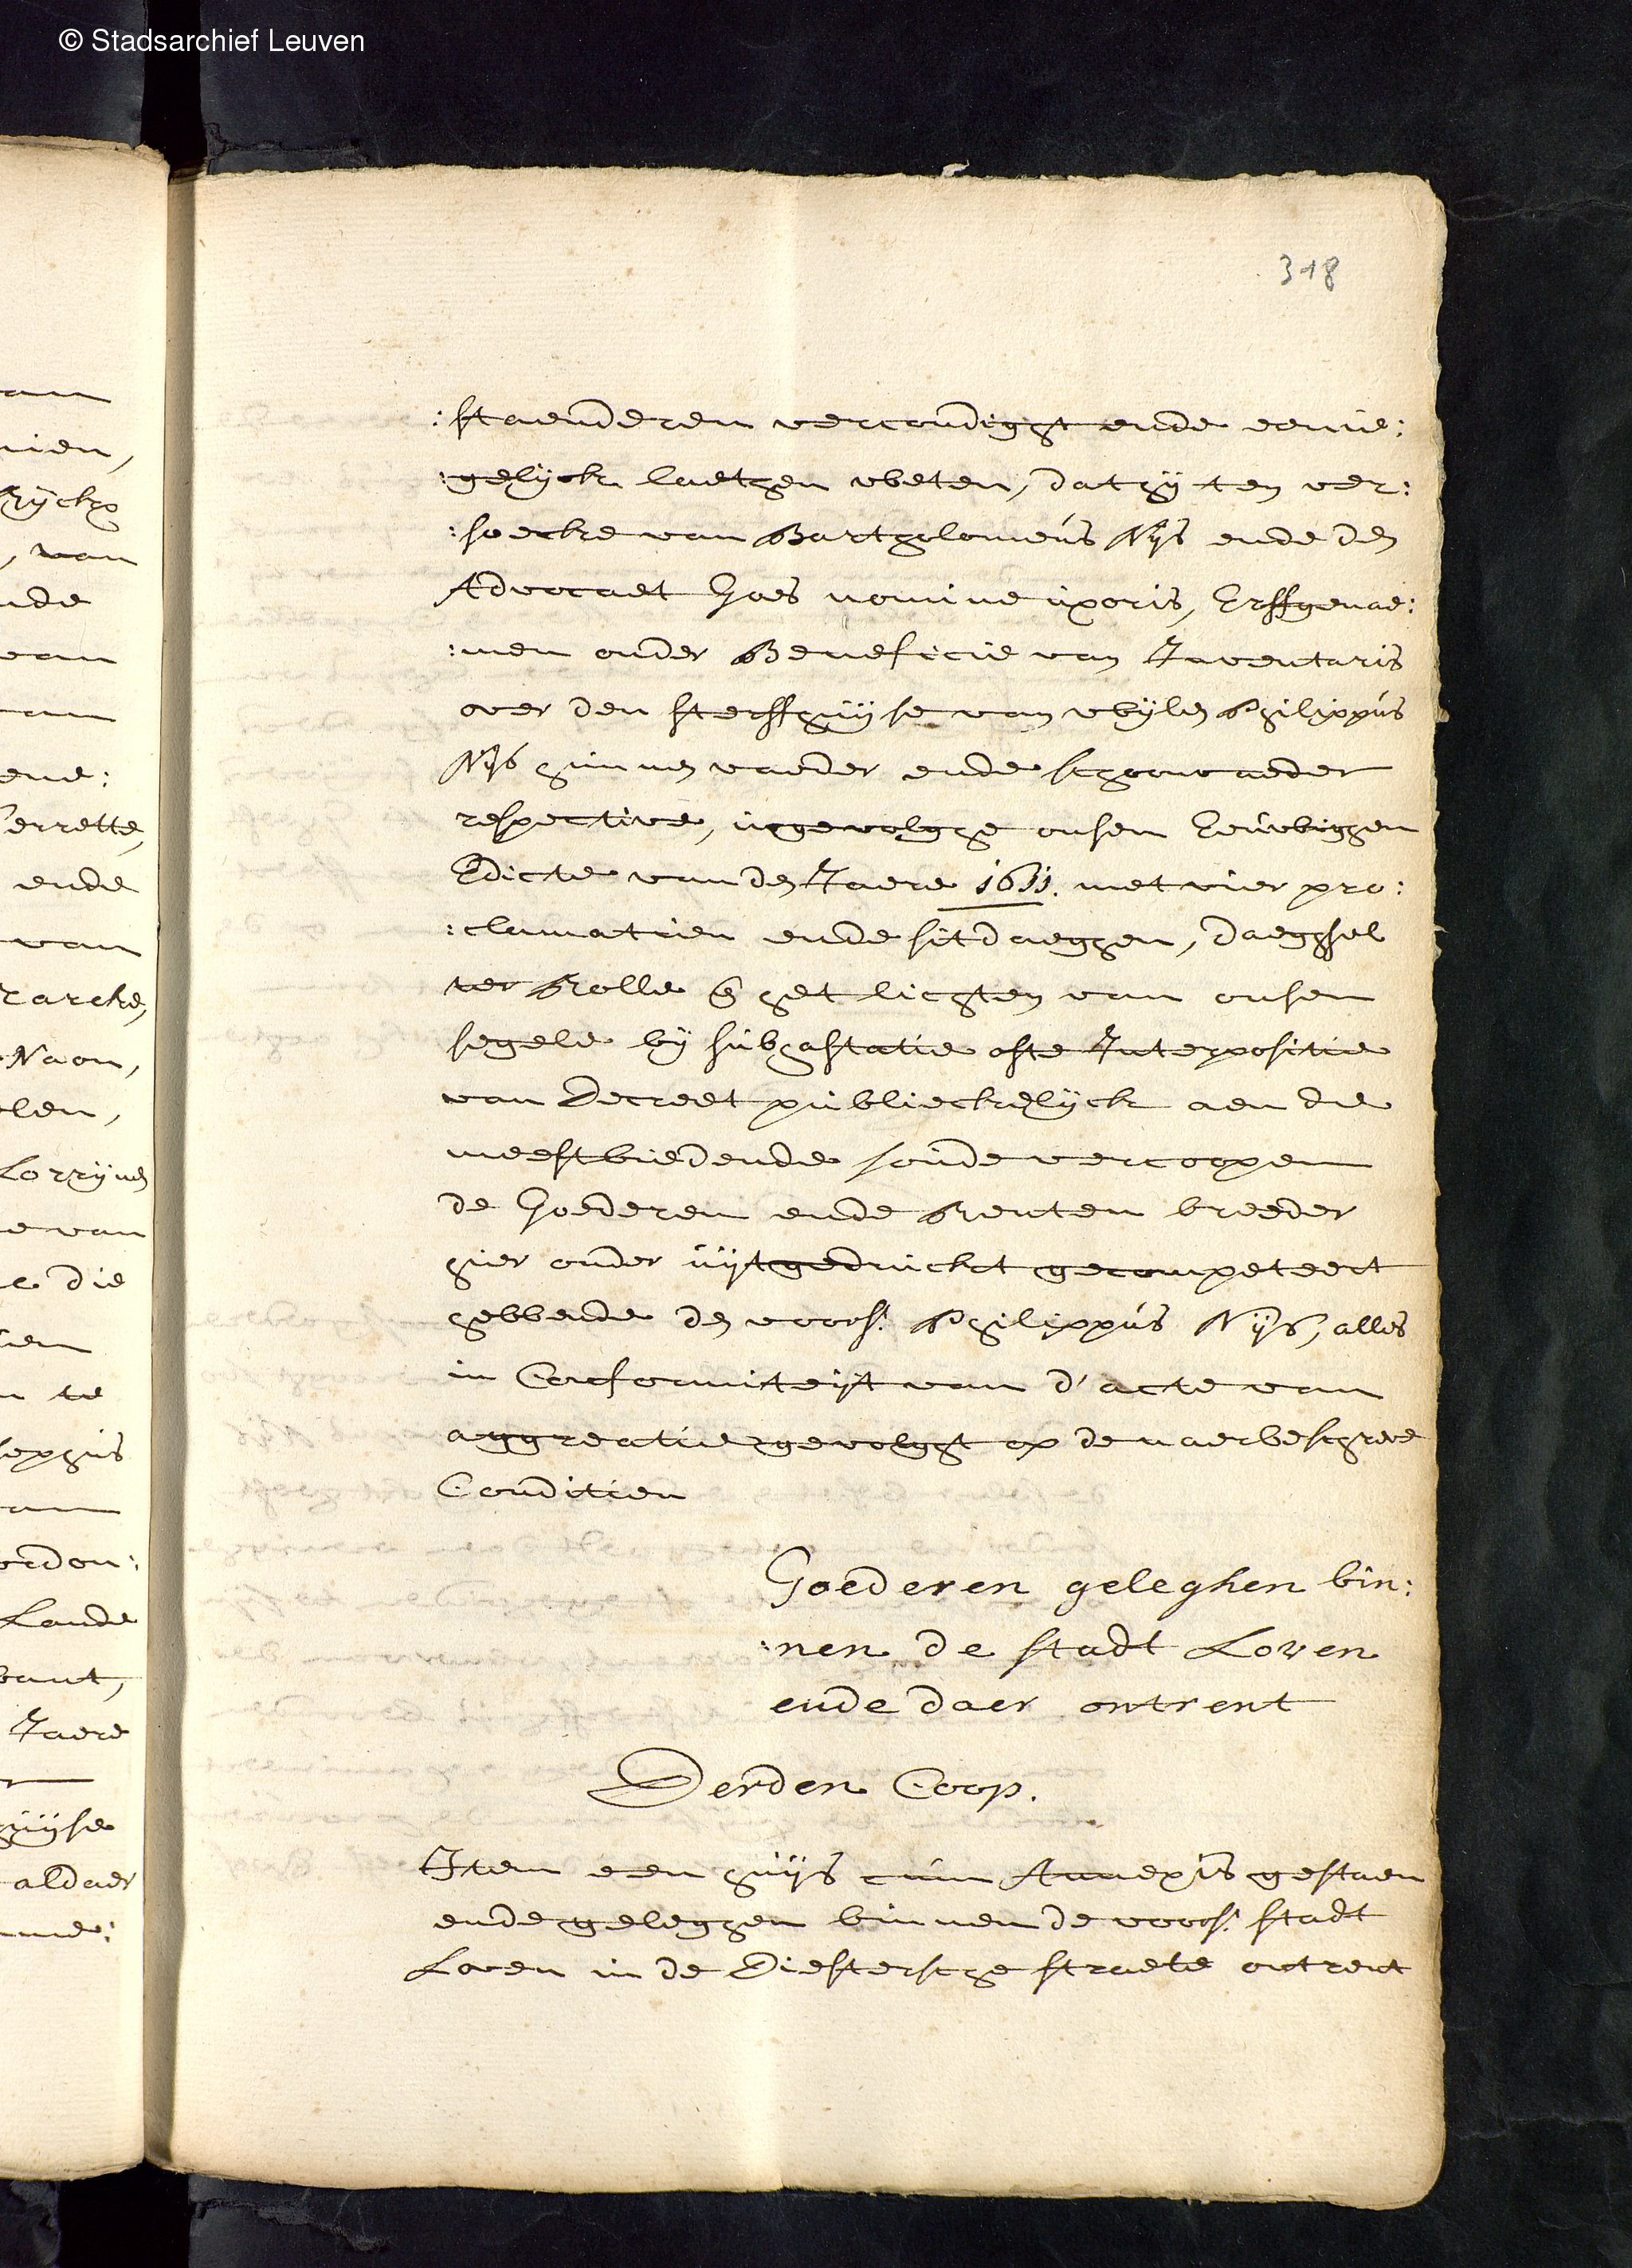 © Stadsarchief Leuven
318
:staenderen vercondight ende eenie:
:gelyck laethen weten, dat hy ten ver:
:soecke van Bartholomeus Nys ende den
Advocaet Goes nomine uxoris, Erffgenae:
:men onder Beneficie van Inventaris
over den sterffhuyse van wylen Philippus
Nys hunnen vaeder ende schoonvaeder
respective, ingevolghe onsen Eeuwighen
Edicte van den Jaere 1611. met vier pro:
:clamatien ende sitdaeghen, daeghsel
ter Rolle & het lichten van onsen
segele by subhastatie ofte Interpositie
van Decreet publieckelyck aen die
meestbiedende soude vercoopen
de Goederen ende Renten breeder
hier onder uytgedruckt gecompeteert
hebbende den voors. Philippus Nys, alles
in Conformiteyt van d'acte van
aggreatie gevolght op de naerbeschreve
Conditien
Goederen geleghen bin:
:nen de stadt Loven
ende daer ontrent
Derden Coop.
Item een huys cum Annexis gestaen
ende geleghen binnen de voors. stadt
Loven in de Diestersche straete ontrent
van
nien,
Ryckx
, van
nde
van
van
ene:
errette,
ende
van
rarcke,
Naon,
len,
Lorrynen
e van
e die
ien
n te
sephus
van
ordon:
Lande
bant,
Jaere
huyse
aldaer
me: